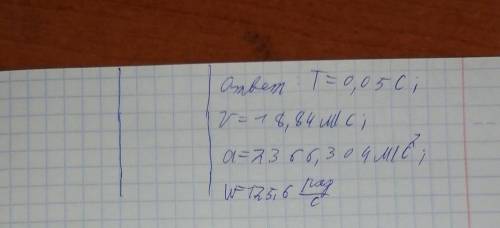 Ответ: T=0,05 с;
v=18,84 м/с;
a=2366,304 м/с²;
W=125,6 рад/с